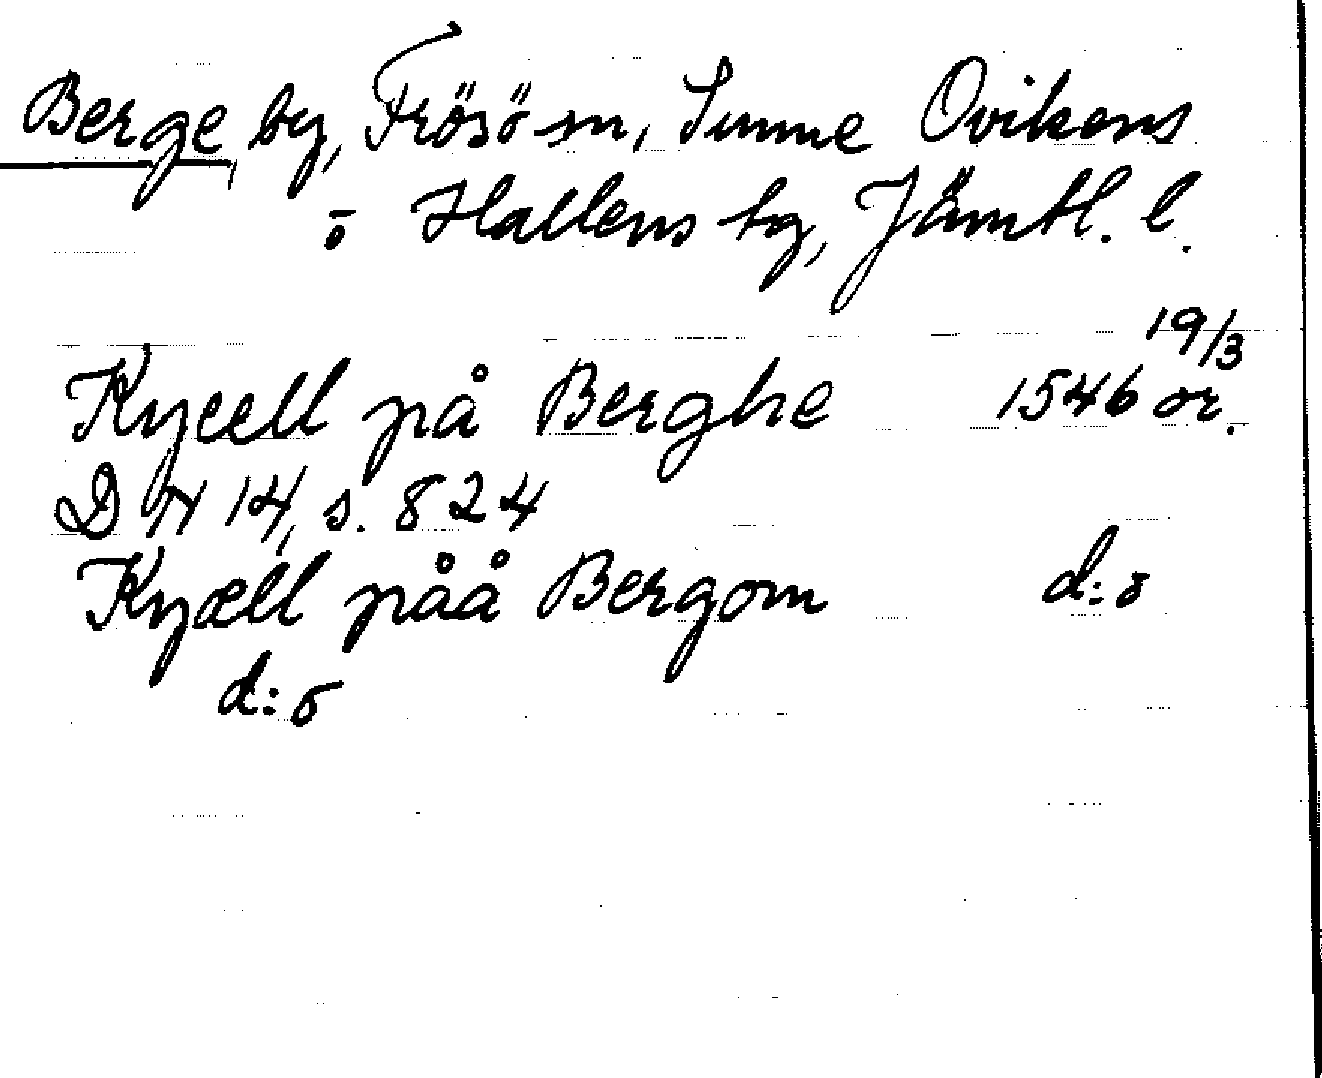 Berge, by, Frösö sn, Sunne Ovikens
o Hallens tg, Jämtl. l.
19/3
Kyell på Berghe 1546 or.
DN 14, s. 824
Kyæll påå Bergom d:o
d:o